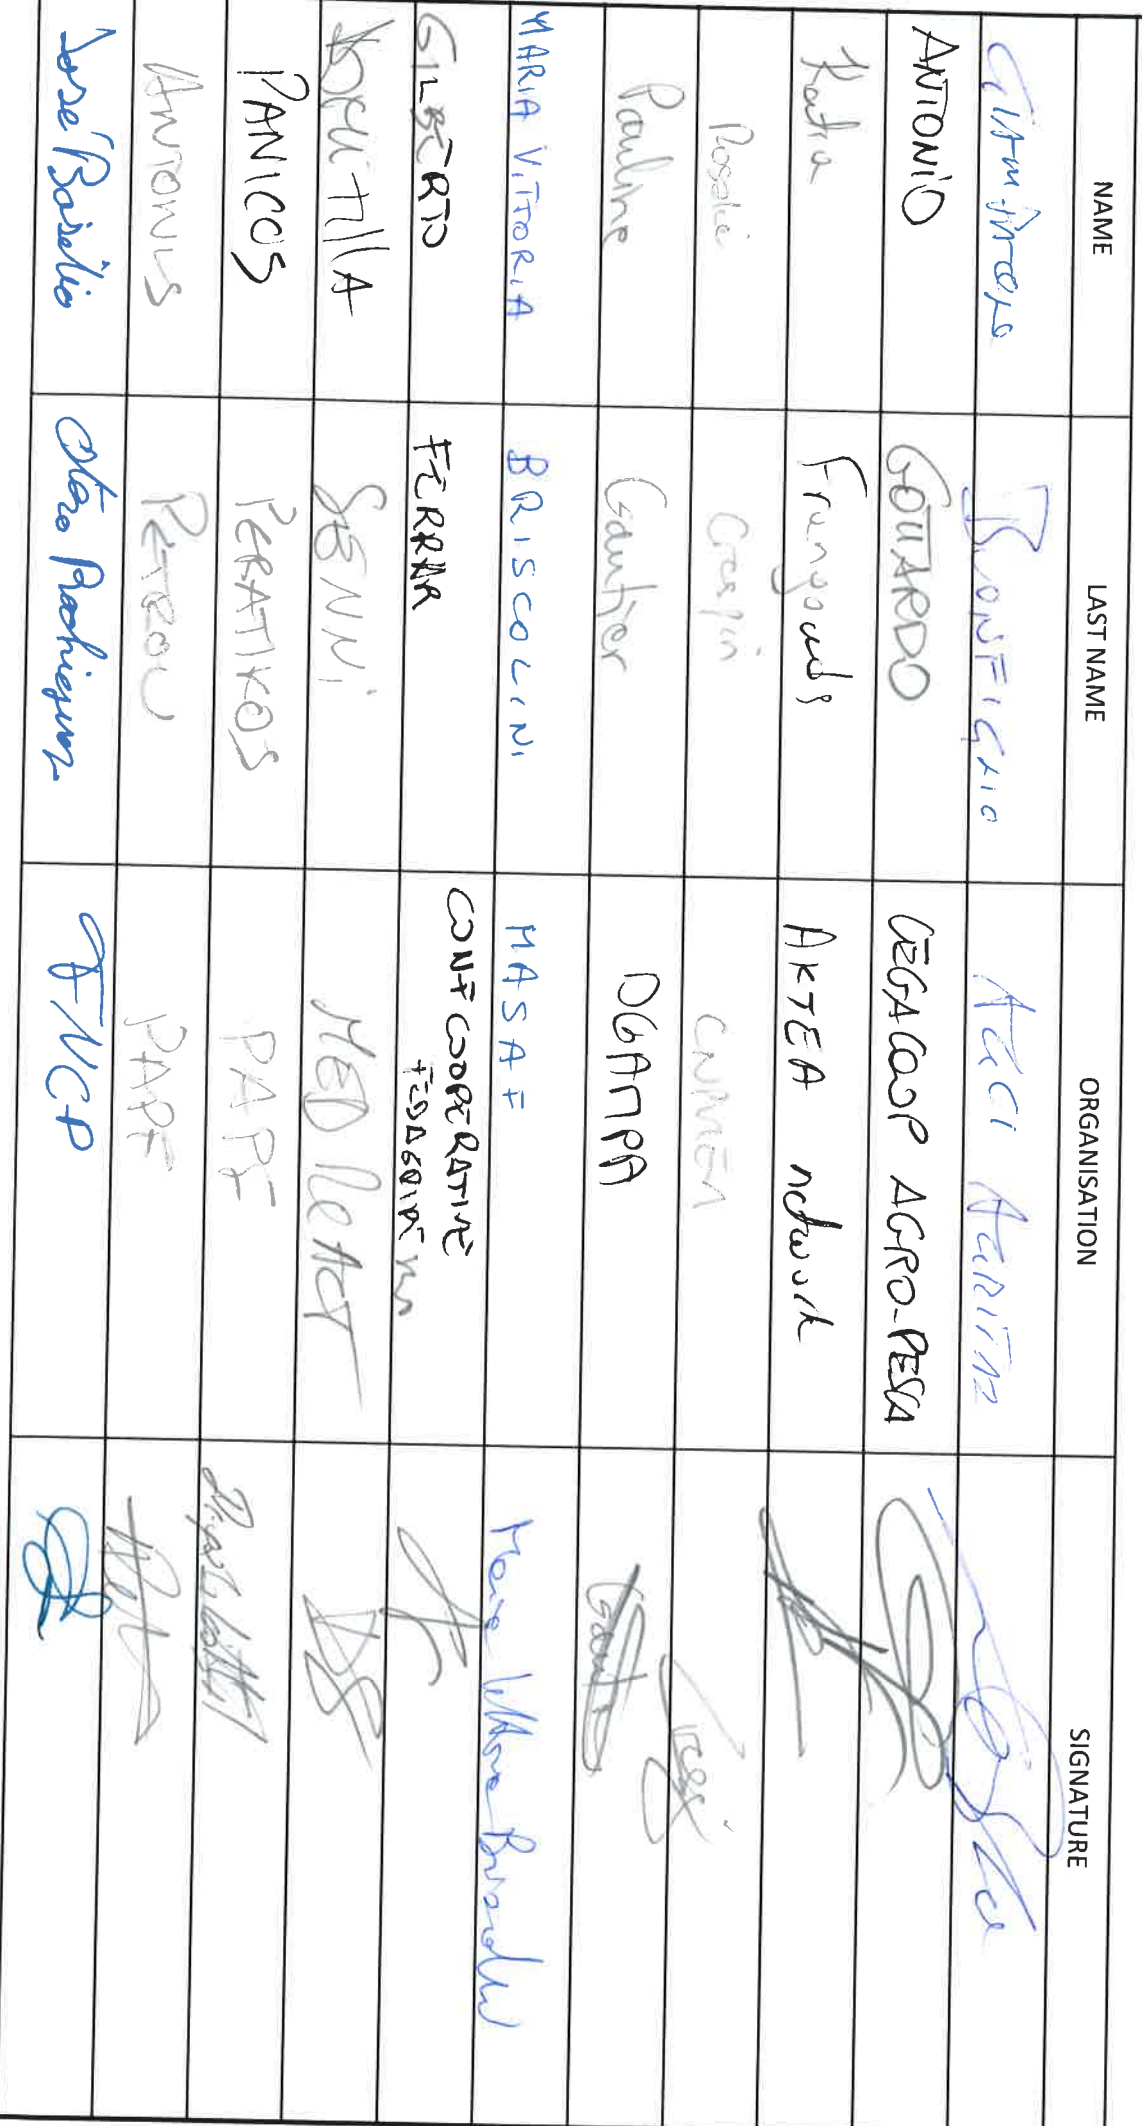 NAME LAST NAME ORGANISATION SIGNATURE
BONFIGLIO AGCI AGRITAL
ANTONIO GOTTARDO LEGACOOP AGRO-PESCA
Katia Frangoudes AKTEA network
Rosalie Crespin CNPMEM
Pauline Gautier DGAMPA Gautier
MARIA VITTORIA BRISCOLINI MASAF Maria Vittoria Briscolini
GILBERTO FERRARI CONFCOOPERATIVE
FEDAGRIPESCA
DOMITILLA SENNI MED ReACT DS
PANICOS PERATIKOS PAPF
ANTONIS PETROU PAPF
José Basilio Otero Rodriguez FNCP